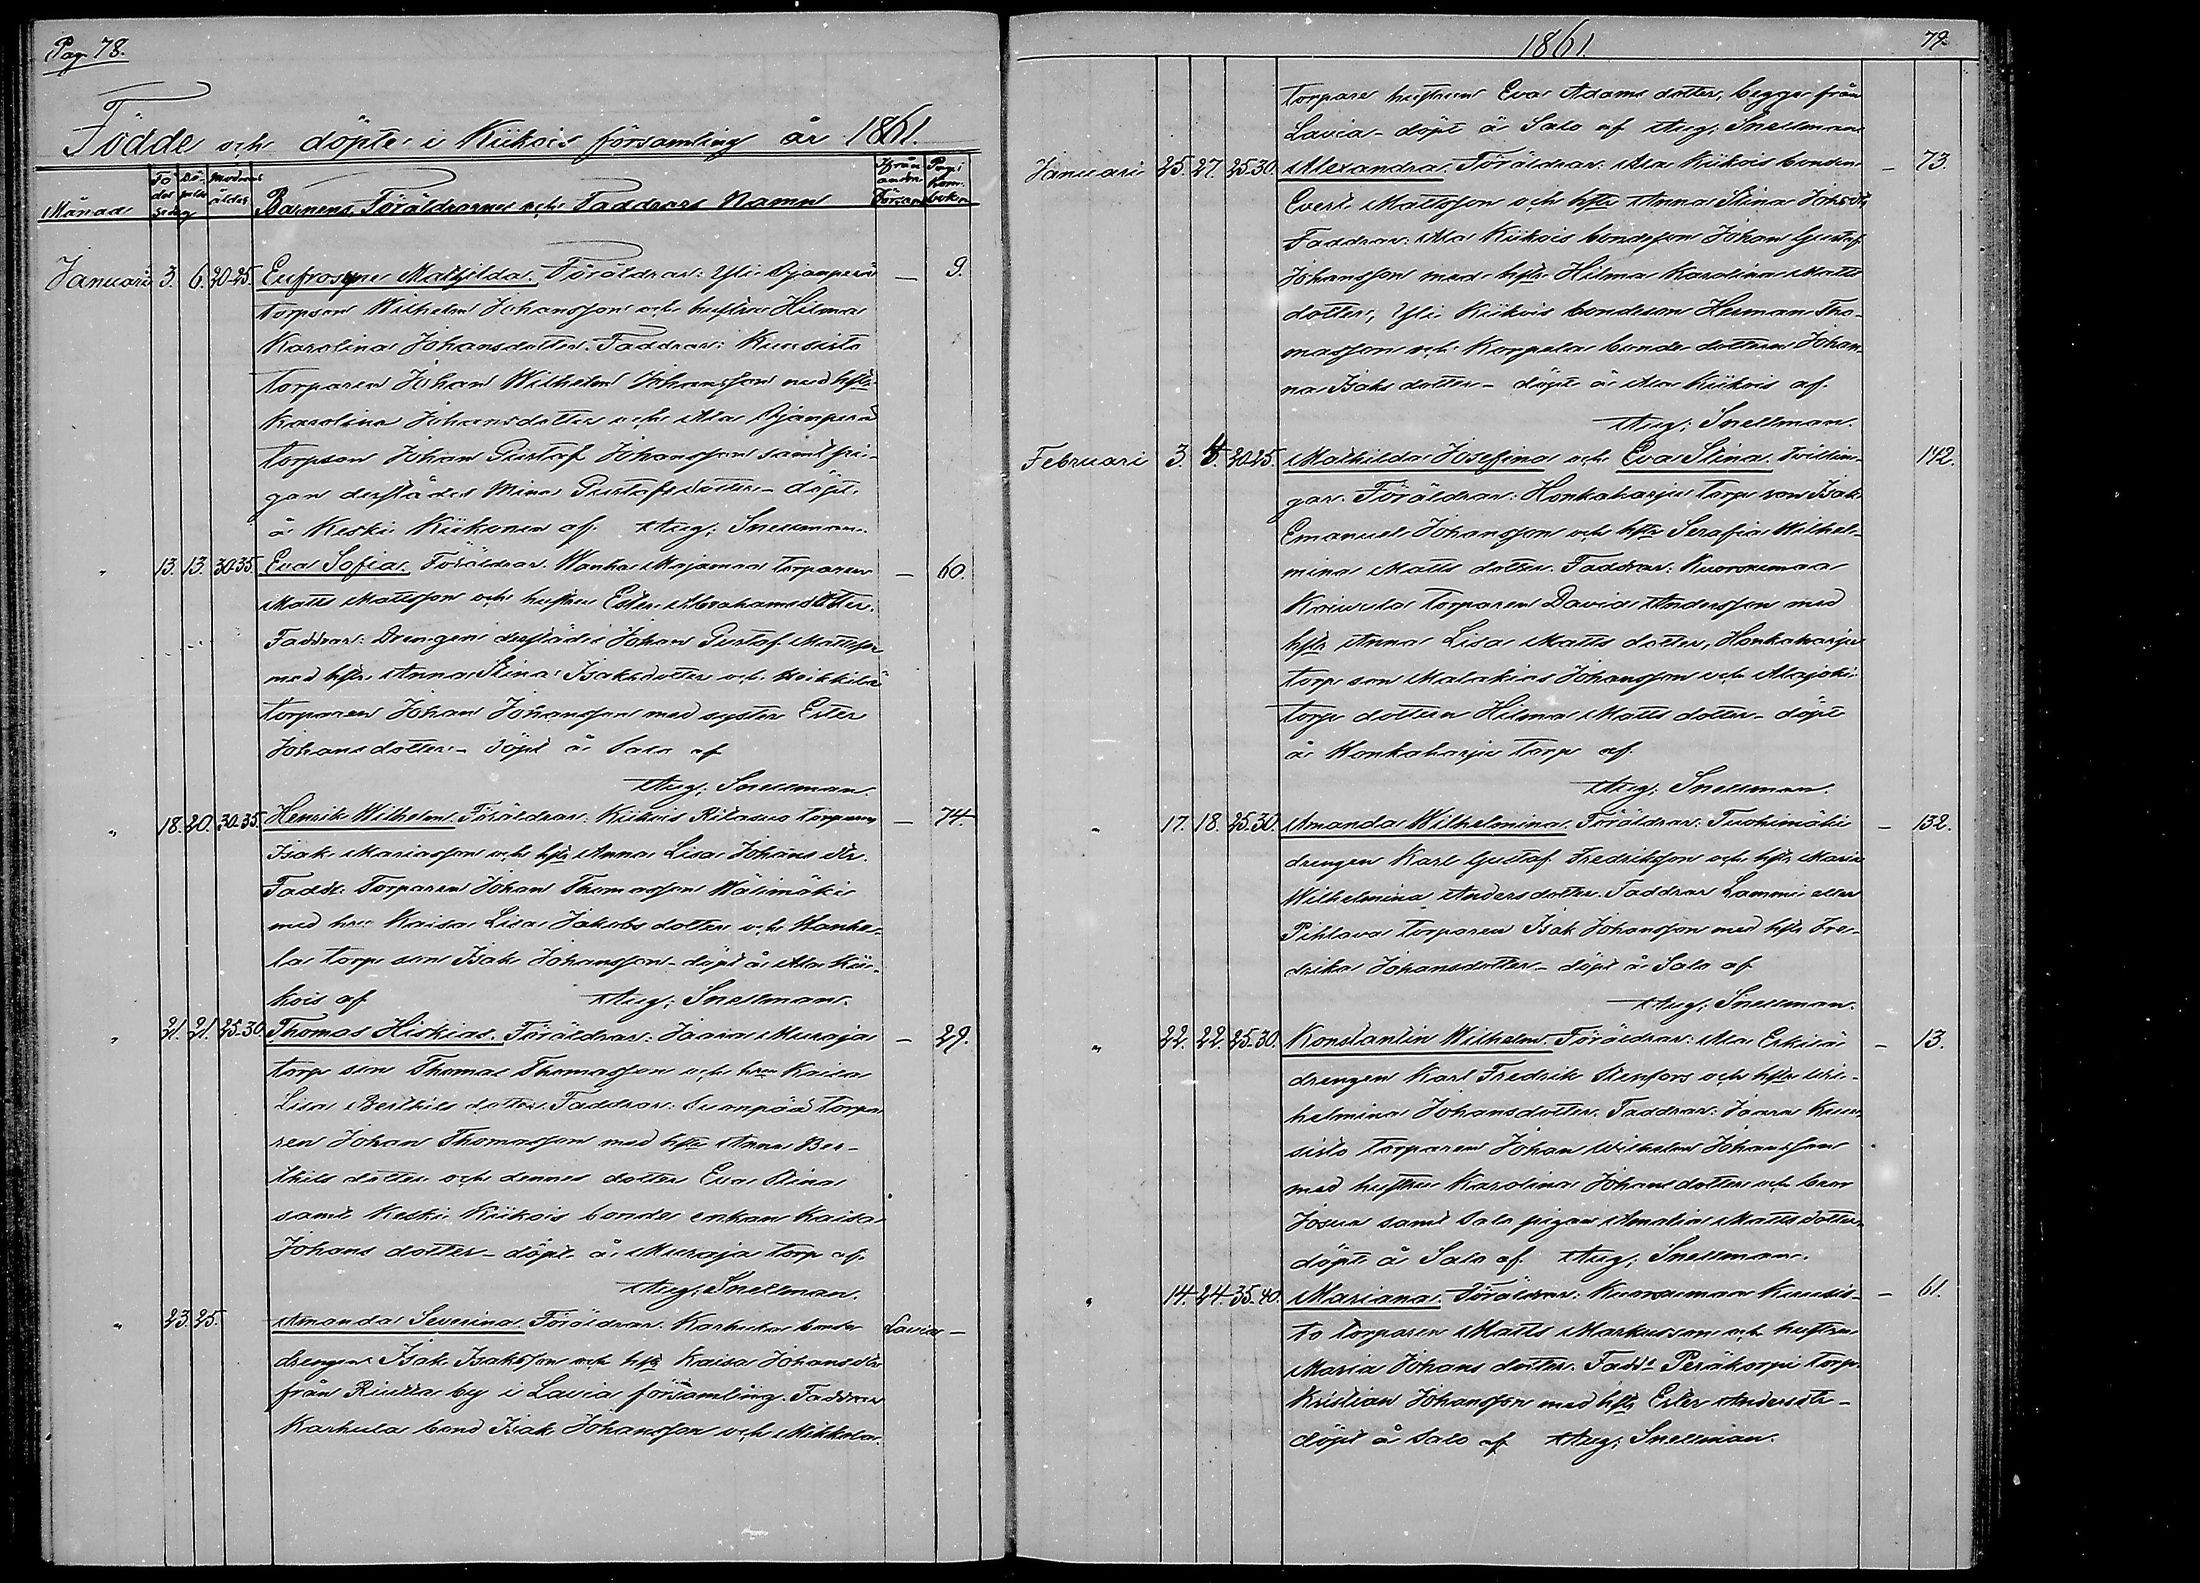 Pag. 78.
Födde och döpte i Kiikois församling år 1861.
Månad Fö- des Dö- ptes dag Modrens ålder Barnens, Föräldrarnes och Faddrars Namn Ifrån andra Församl. Pag. i Kom. boken
Januari 3. 6. 20-25. Eufrosyne Mathilda. Föräldrar: Yli Djänperä — 9.
torpson Wilhelm Johansson och hustru Hilma
Karolina Johansdotter. Faddrar: Kuusisto
torparen Johan Wilhelm Johansson med hstr
Karolina Johansdotter och Ala Djänperä
torpson Johan Gustaf Johansson samt pi-
gan derstädes Mina Gustafsdotter – döpt.
å Keski Kiikonen af Aug. Snellman.
" 13. 13. 30-35. Eva Sofia. Föräldrar. Wanha Majamaa torparen — 60.
Matts Mattsson och hustru Ester Abrahamsdotter.
Faddrar: Drengen derstädes Johan Gustaf Mattsson
med hstr Anna Stina Isaksdotter och Heikkilä
torparen Johan Johansson med syster Ester
Johansdotter – döpt å Salo af
Aug. Snellman.
" 18. 20. 30-35. Henrik Wilhelm. Föräldrar. Kiikois Ritasuo torparen — 74.
Isak Mariasson och hstr Anna Lisa Johans dtr.
Fadd: Torparen Johan Thomasson Wälimäki
med hru Kaisa Lisa Jakobs dotter och Hanke-
la torp son Isak Johansson – döpt å Ala Kii-
kois af Aug. Snellman.
" 21. 21. 25-30. Thomas Hiskias. Föräldrar: Jaara Muraja — 29.
torp son Thomas Thomasson och hru Kaisa
Lisa Berthils dotter. Faddrar: Suonpää torpa
ren Johan Thomasson med hstr Anna Ber-
thils dotter och dennes dotter Eva Stina
samt Keski Kiikois bonde enkan Kaisa
Johans dotter – döpt å Muraja torp af
Aug. Snellman.
" 23. 25. Amanda Severina. Föräldrar. Karhula bonde Lavia —
drengen Isak Isaksson och hstr Kaisa Johans dtr
från Riutta by i Lavia församling. Faddrar
Karhula bond Isak Johansson och Mikkola
1861. 79.
torpare hustrun Eva Adams dotter, begge från
Lavia – döpt å Salo af Aug. Snellman
Januari 25. 27. 25-30. Alexandra. Föräldrar. Ala Kiikois bonden — 73.
Evert Mattsson och hstr Anna Stina Johsdtr.
Faddrar: Ala Kiikois bondeson Johan Gustaf
Johansson med hstr Hilma Karolina Matts
dotter, Yli Kiikois bondeson Herman Tho-
masson och Korpela bonde dottren Johan-
na Isaks dotter – döpt å Ala Kiikois af
Aug. Snellman.
Februari 3. 4. 20-25. Mathilda Josefina och Eva Stina. Tvillin- 142.
gar. Föräldrar: Honkaharju torp son Isak
Emanuel Johansson och hstr Serafia Wilhel-
mina Matts dotter. Faddrar: Kuorsumaa
torparen David Andersson med
hstr Anna Lisa Matts dotter, Honkaharju
torp son Malakias Johansson och Alajoki
torp dottren Hilma Matts dotter – döpt
å Honkaharju torp af.
Aug. Snellman.
" 17. 18. 25-30. Amanda Wilhelmina. Föräldrar: Tuohimäki — 132.
drengen Karl Gustaf Fredriksson och hstr Maria
Wilhelmina Andersdotter. Faddrar Lammi eller
Pihlava torparen Isak Johansson med hstr Fre-
drika Johansdotter – döpt å Salo af
Aug. Snellman.
" 22. 22. 25-30. Konstantin Wilhelm. Föräldrar: Ala Erkilä — 13.
drengen Karl Fredrik Stenfors och hstr Wil-
helmina Johansdotter. Faddrar: Jaara Kuu
sisto torparen Johan Wilhelm Johansson
med hustrun Karolina Johansdotter och bror
Josua samt Salo pigan Amalia Matts dotter
döpt å Salo af Aug. Snellman.
" 14. 24. 35-40. Mariana. Föräldrar. Kuorsumaa Kuusis- — 61.
to torparen Matts Markusson och hustrun
Maria Johans dotter. Fadd: Peräkorpi torp.
Kristian Johansson med hstr Ester Anders dtr –
döpt å Salo af Aug. Snellman.